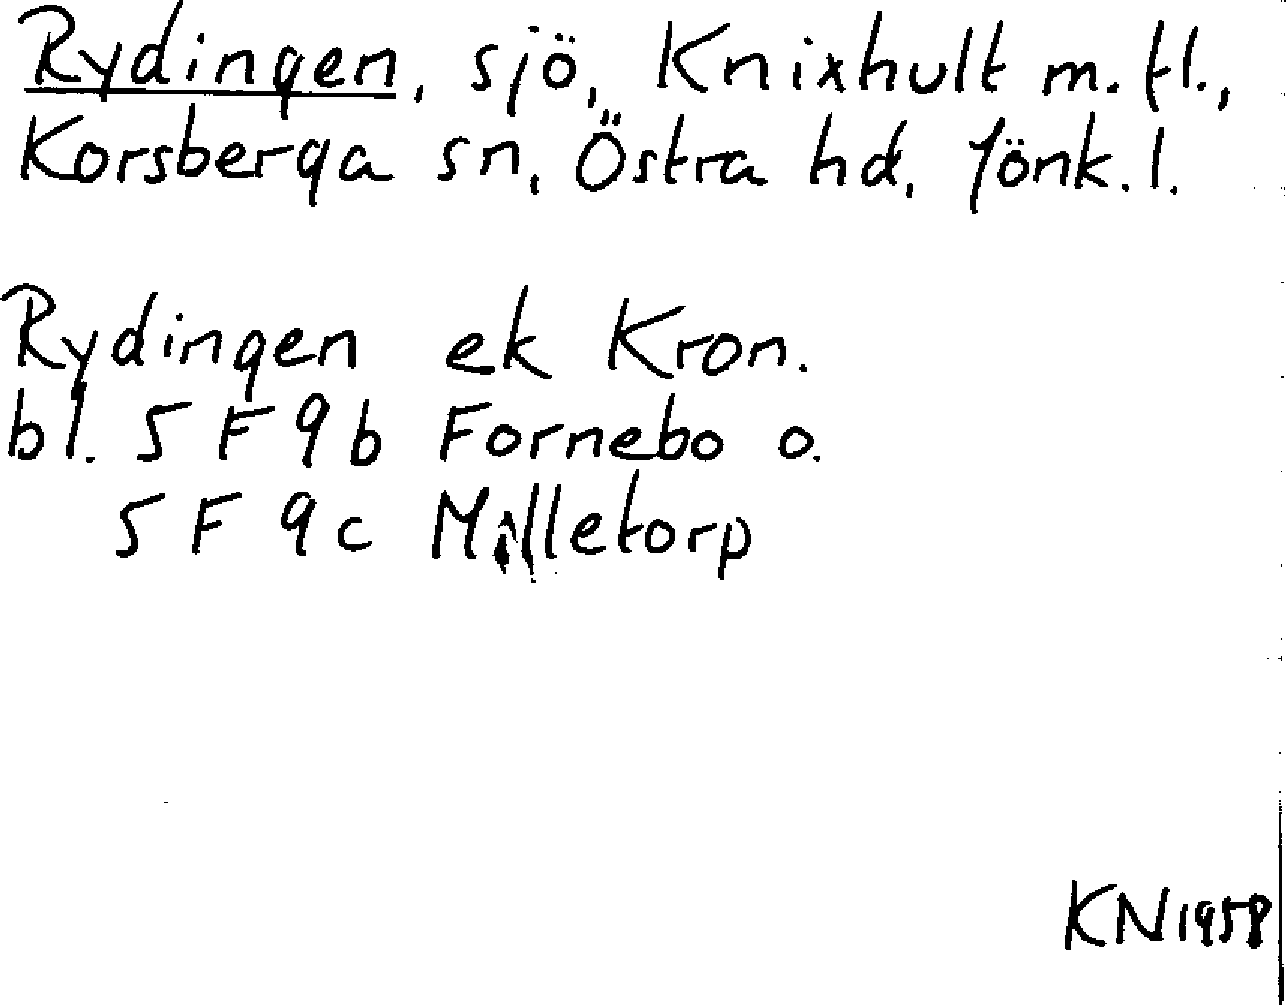 Rydingen, sjö, Knixhult m. fl.,
Korsberga sn, Östra hd, Jönk. l.
Rydingen ek Kron.
bl. 5 F 9 b Fornebo o.
5 F 9 c Milletorp
KN 1958